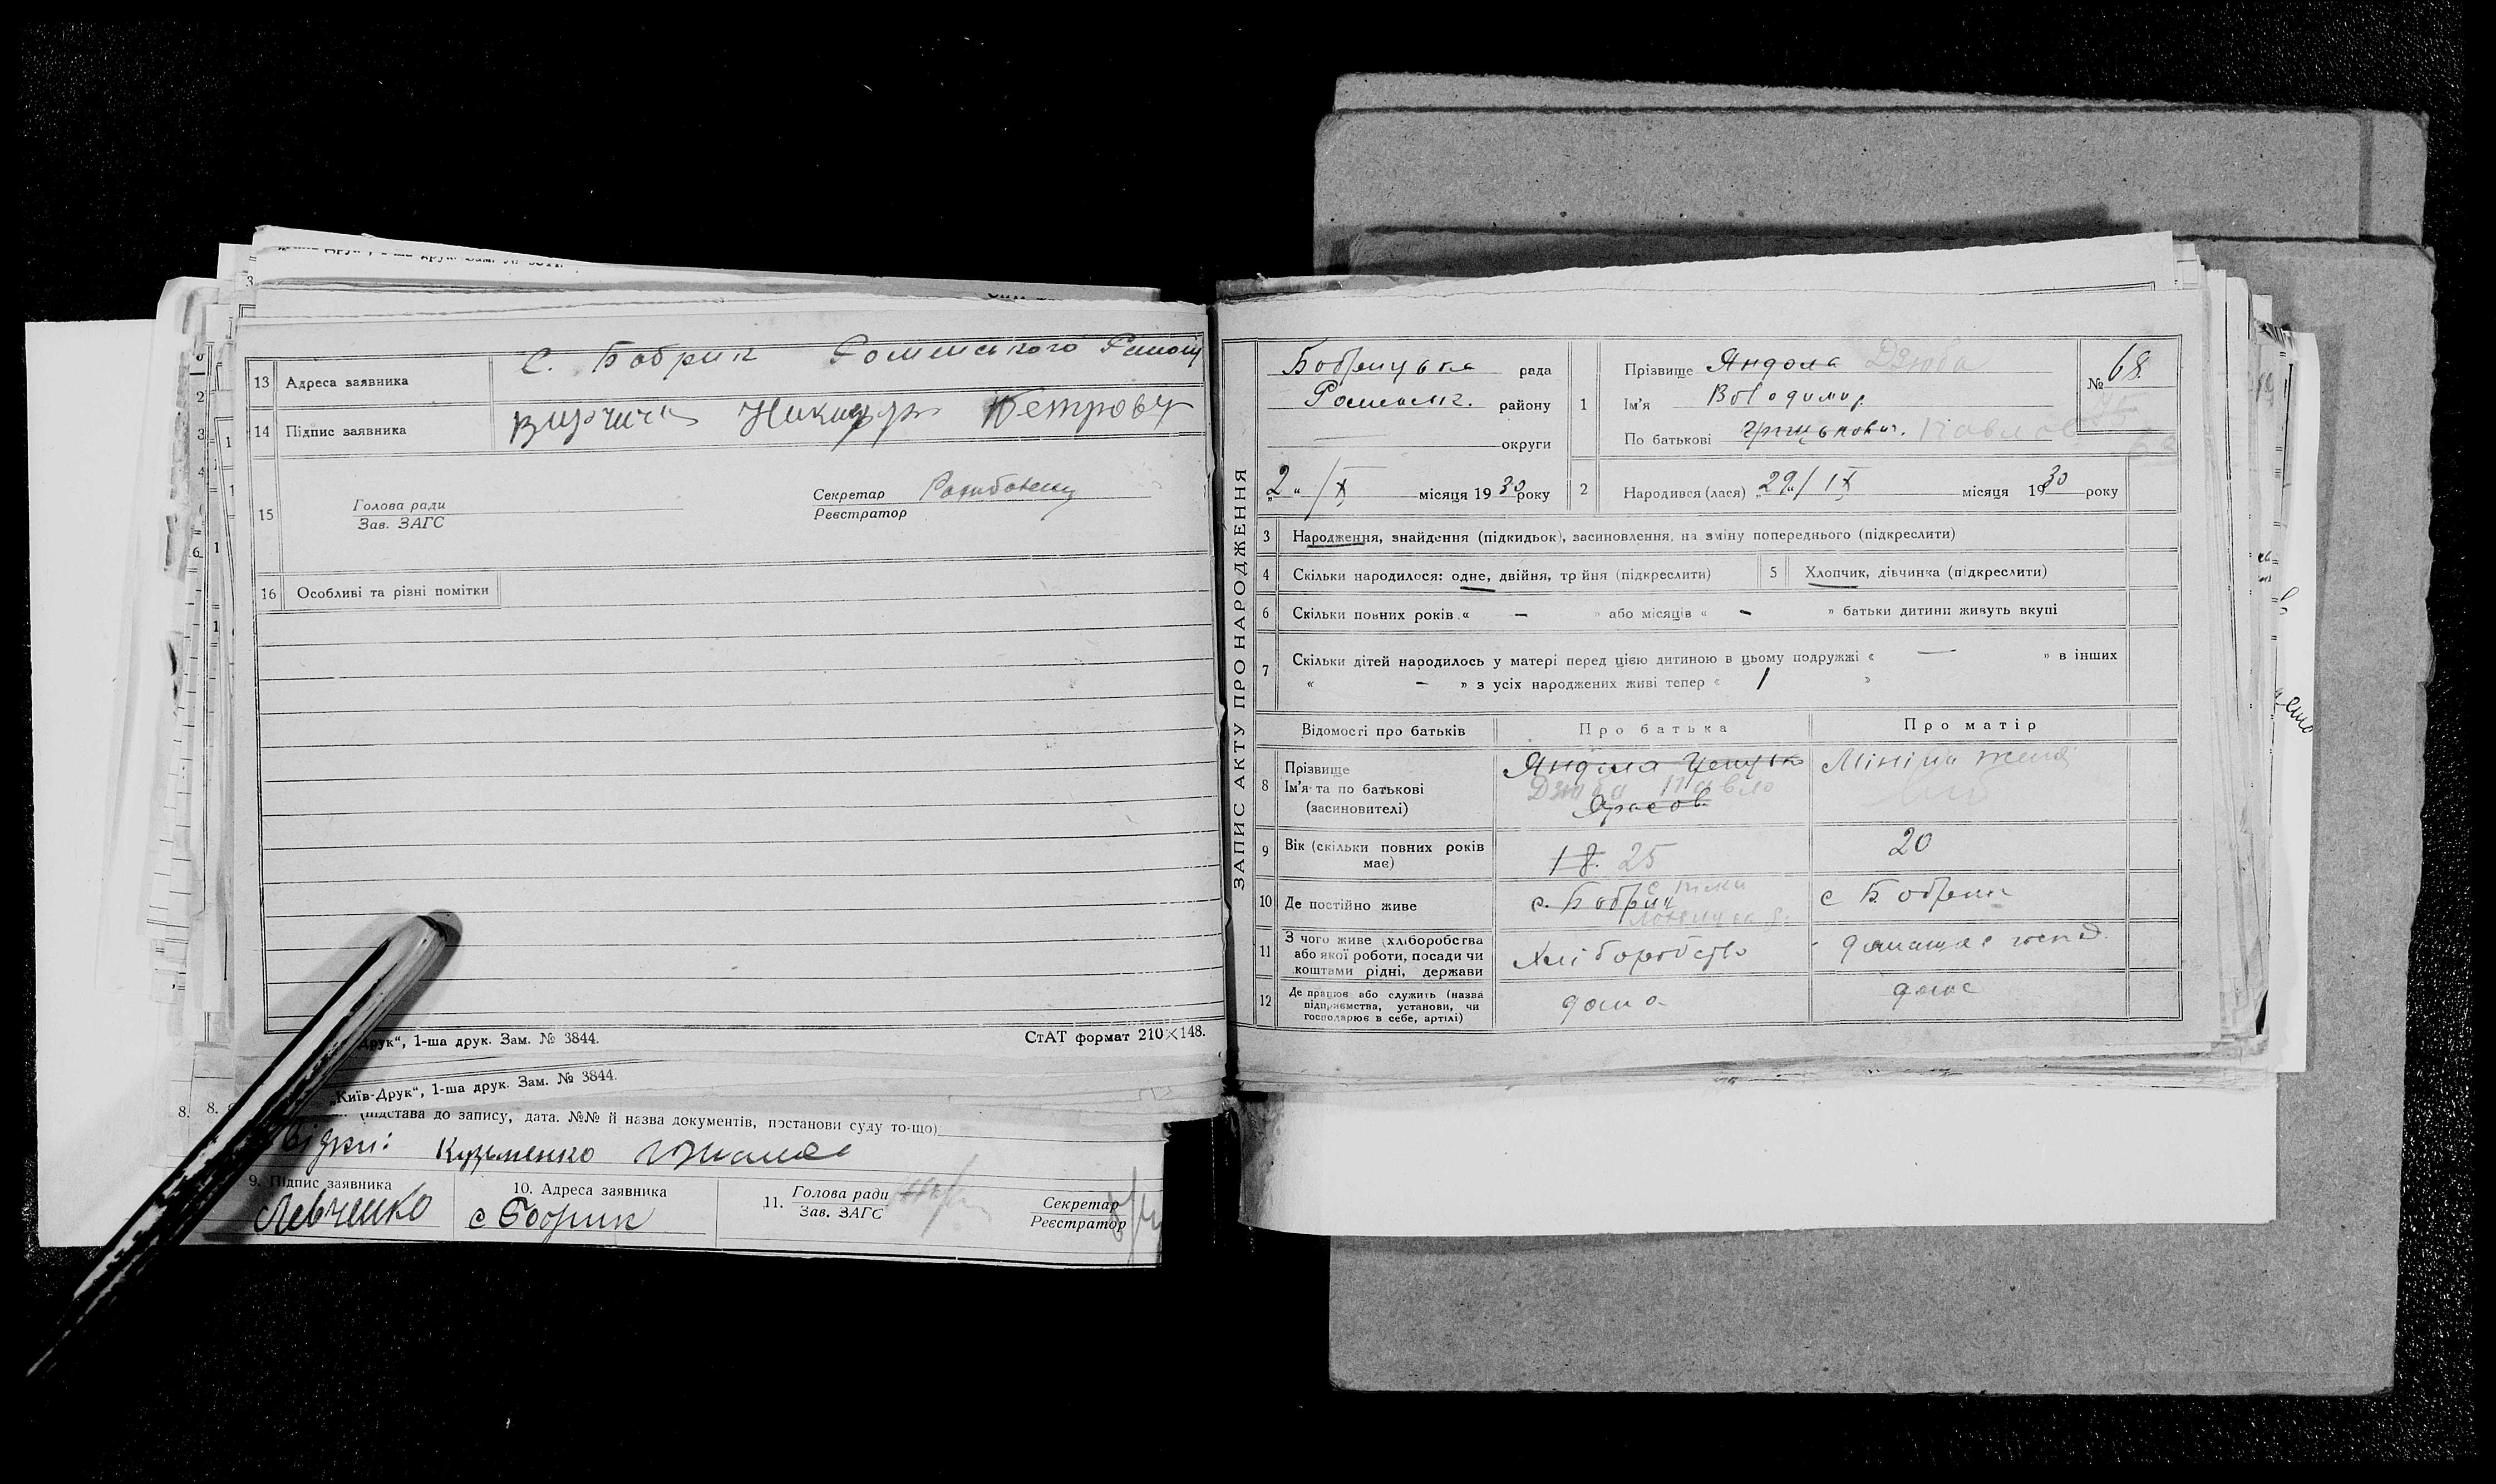 13 Адреса заявника с. Бобрик Роменського Району
14 Підпис заявника Никифор Петрову
15 Голова ради
Зав. ЗАГС
Секретар
Реєстратор
16 Особливі та різні помітки
Друк“, 1-ша друк. Зам. № 3844.
СтАТ формат 210×148.
„Київ-Друк“, 1-ша друк. Зам. № 3844.
8. 8.
(підстава до запису, дата. №№ й назва документів, постанови суду то-що)
Кузьменко
9. Підпис заявника
Левченко
10. Адреса заявника
с Бобрик
11. Голова ради
Зав. ЗАГС
Секретар
Реєстратор
ЗАПИС АКТУ ПРО НАРОДЖЕННЯ
Бобрицька рада
Роменськ. району
округи
"2" / X місяця 1930 року
1 Прізвище Яндола Дзюба
Ім'я Володимир
По батькові Грицькович. Павлов
№ 68
2 Народився (лася) "29" / IX місяця 1930 року
3 Народження, знайдення (підкидьок), засиновлення, на зміну попереднього (підкреслити)
4 Скільки народилося: одне, двійня, трійня (підкреслити)
5 Хлопчик, дівчинка (підкреслити)
6 Скільки повних років « – » або місяців « – » батьки дитини живуть вкупі
7 Скільки дітей народилось у матері перед цією дитиною в цьому подружжі « — » в інших
« – » з усіх народжених живі тепер « 1 »
Відомості про батьків
Про батька
Про матір
8 Прізвище
Ім'я та по батькові
(засиновителі)
Яндола
Дзюба Павло
9 Вік (скільки повних років має)
18. 25
20
10 Де постійно живе
с. Бобрик
с Бобрик
11 З чого живе (хліборобства
або якої роботи, посади чи
коштами рідні, держави
Хліборобство
12 Де працює або служить (назва
підприємства, установи, чи
господарює в себе, артілі)
дома
дома